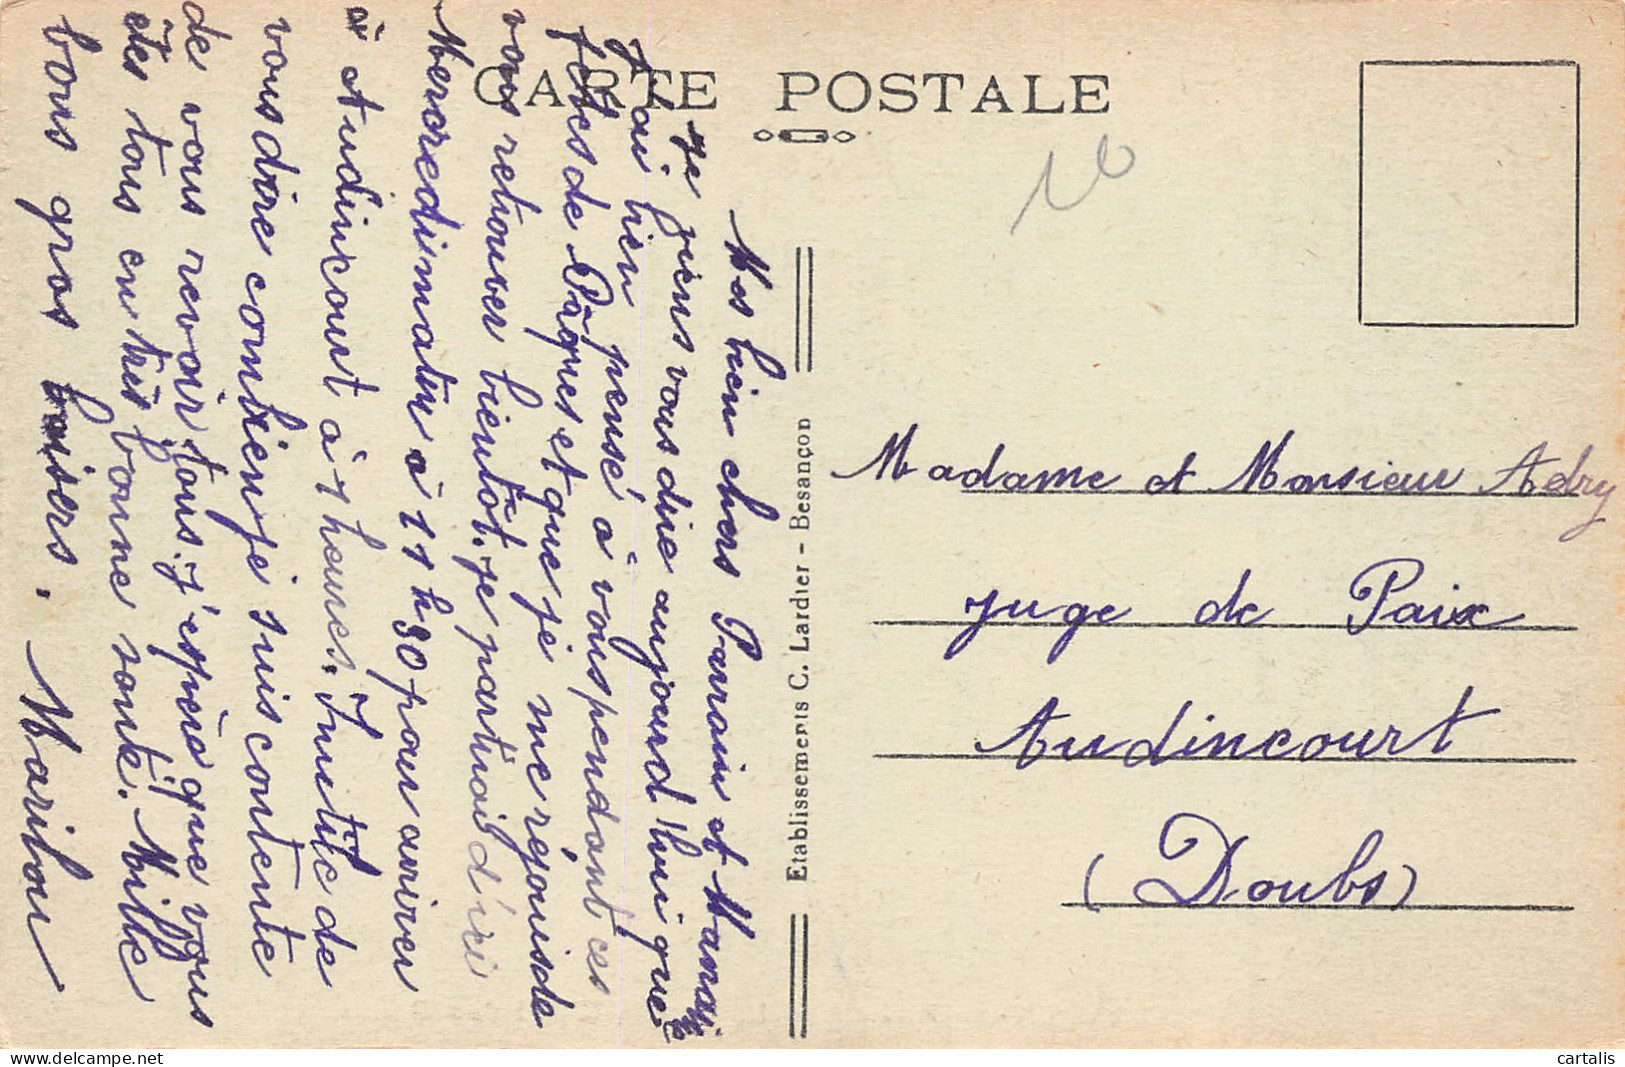 CARTE POSTALE
10
Mes bien chers Parrain et
je viens vous dire aujourd'hui que
j'ai bien pensé à vous pendant ces
fêtes de Pâques et que je me réjouis de
vous retrouver bientôt. je partirai d'ici
Mercredi matin à 11 h 30 pour arriver
à Audincourt à 1 heures. Inutile de
vous dire combien je suis contente
de vous revoir tous. j'espère que vous
êtes tous en très bonne santé. Mille
bons gros baisers. Marilou
Etablissements C. Lardier - Besançon
Madame et Monsieur Adry
juge de Paix
Audincourt
(Doubs)
cartalis